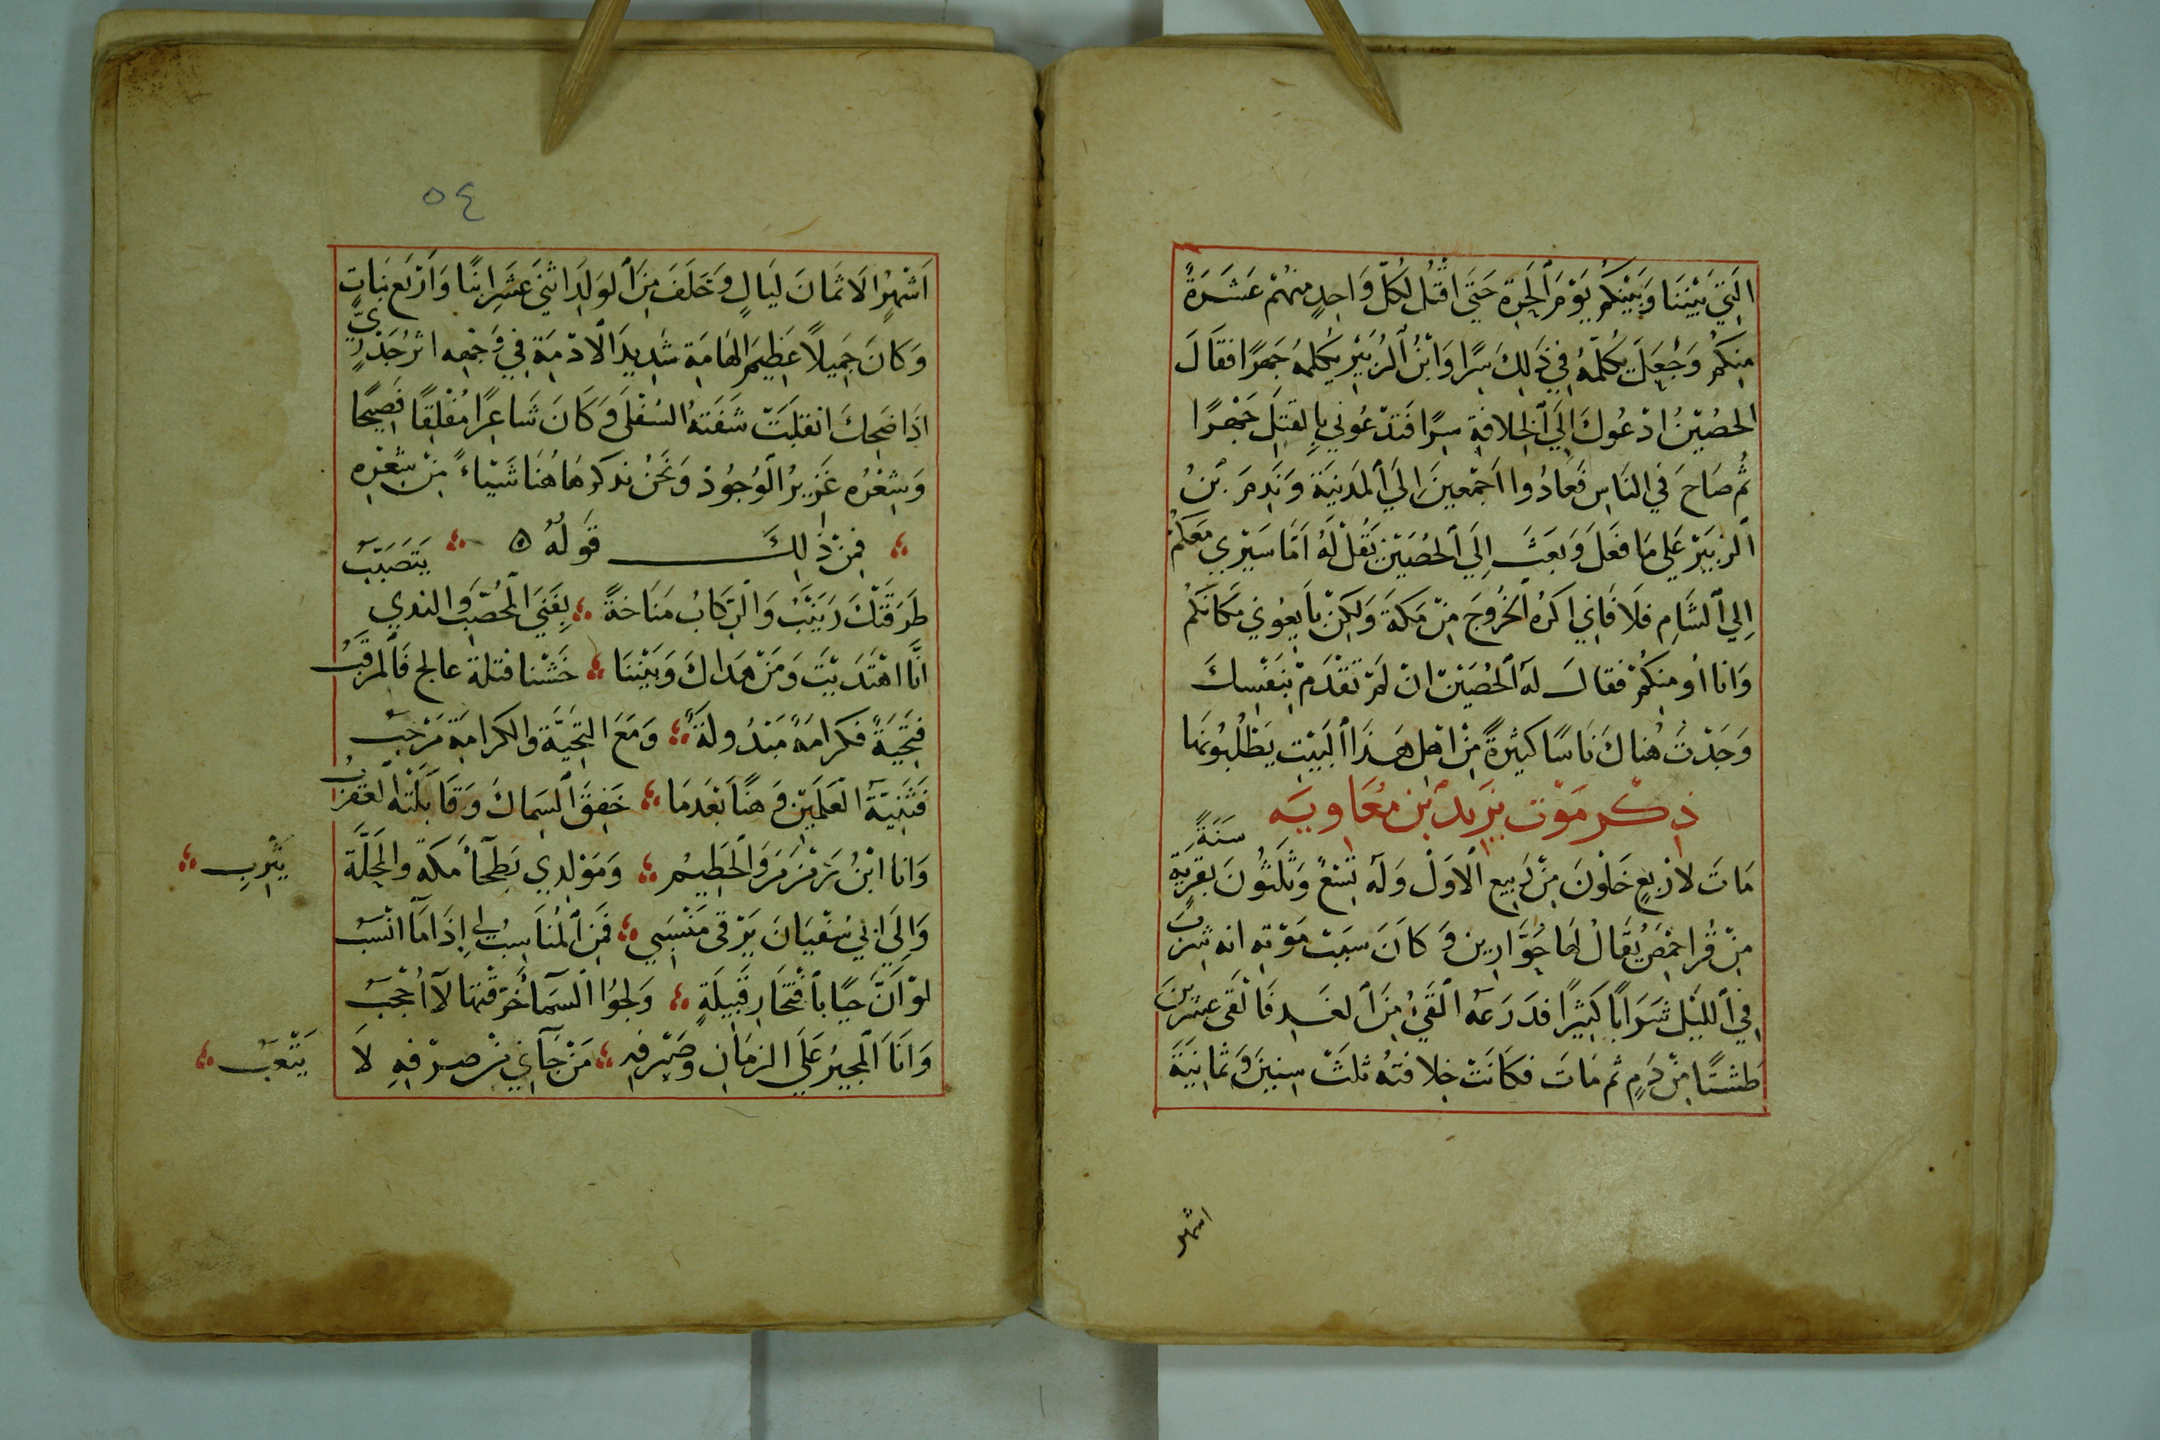 التي بيننا وبينكم يوم الحرة حتى اقتل لكل واحد منهم عشرة
منكم وجعل يكلمه في ذلك سرا وابن الزبير يكلمه جهرا فقال
الحصين ادعوك الي الخلافة سرا فتدعوني بالقتل جهرا
ثم صاح في الناس فعادوا اجمعين الي المدينة وندم بن
الزبير علي ما فعل وبعث الي الحصين بقل له اما سيري معكم
الي الشام فلا فاني اكره الخروج من مكة ولكن بايعوني مكانكم
وانا او منكم فقال له الحصين ان لم تقدم بنفسك
وجدت هناك ناسا كثيرة من اهل هذا البيت يطلبونها
ذكر موت يزيد بن معاويه
مات لاربع خلون من ربيع الاول وله تسع وثلثون سنة بقرية
من قرا حمص يقال لها حوارين وكان سبب موته انه شرب
في الليل شرابا كثيرا فدرعه القيء من الغد فالقى عشرين
طشتا من دم ثم مات فكانت خلافته ثلث سنين وثمانية
اشهر
٥٤
اشهر الا ثمان ليال وخلف من الولد اثني عشر ابنا واربع بنات
وكان جميلا عظيم الهامة شديد الادمة في وجهه اثر جدري
اذا ضحك انقلبت شفته السفلى وكان شاعرا مفلقا فصيحا
وشعره غزير الوجود ونحن نذكر هاهنا شياء من شعره
فمن ذلك قوله
طرقتك زينب والركاب مناخة بفني المحصب والندي يتصبب
انا اهتديت ومن هداك وبيننا خشنا فتلة عالج فالمرقب
فتحية فكرامة مبذولة ومع التحية والكرامة مرحب
فثنية العلمين وهنا بعدما خفق السماك وقابلته العقرب
وانا ابن زمزم والحطيم ومولدي بطحآ مكة والمحلة يثرب
والى ابي سفيان يرقى منسبي فمن المناسب لي اذا ما انسب
لو ان حيا بافتخار قبيلة ولجوا السمآ خرقتها لا احجب
وانا المجير على الزمان وصرفه من جآني من صرفه لا يتعب